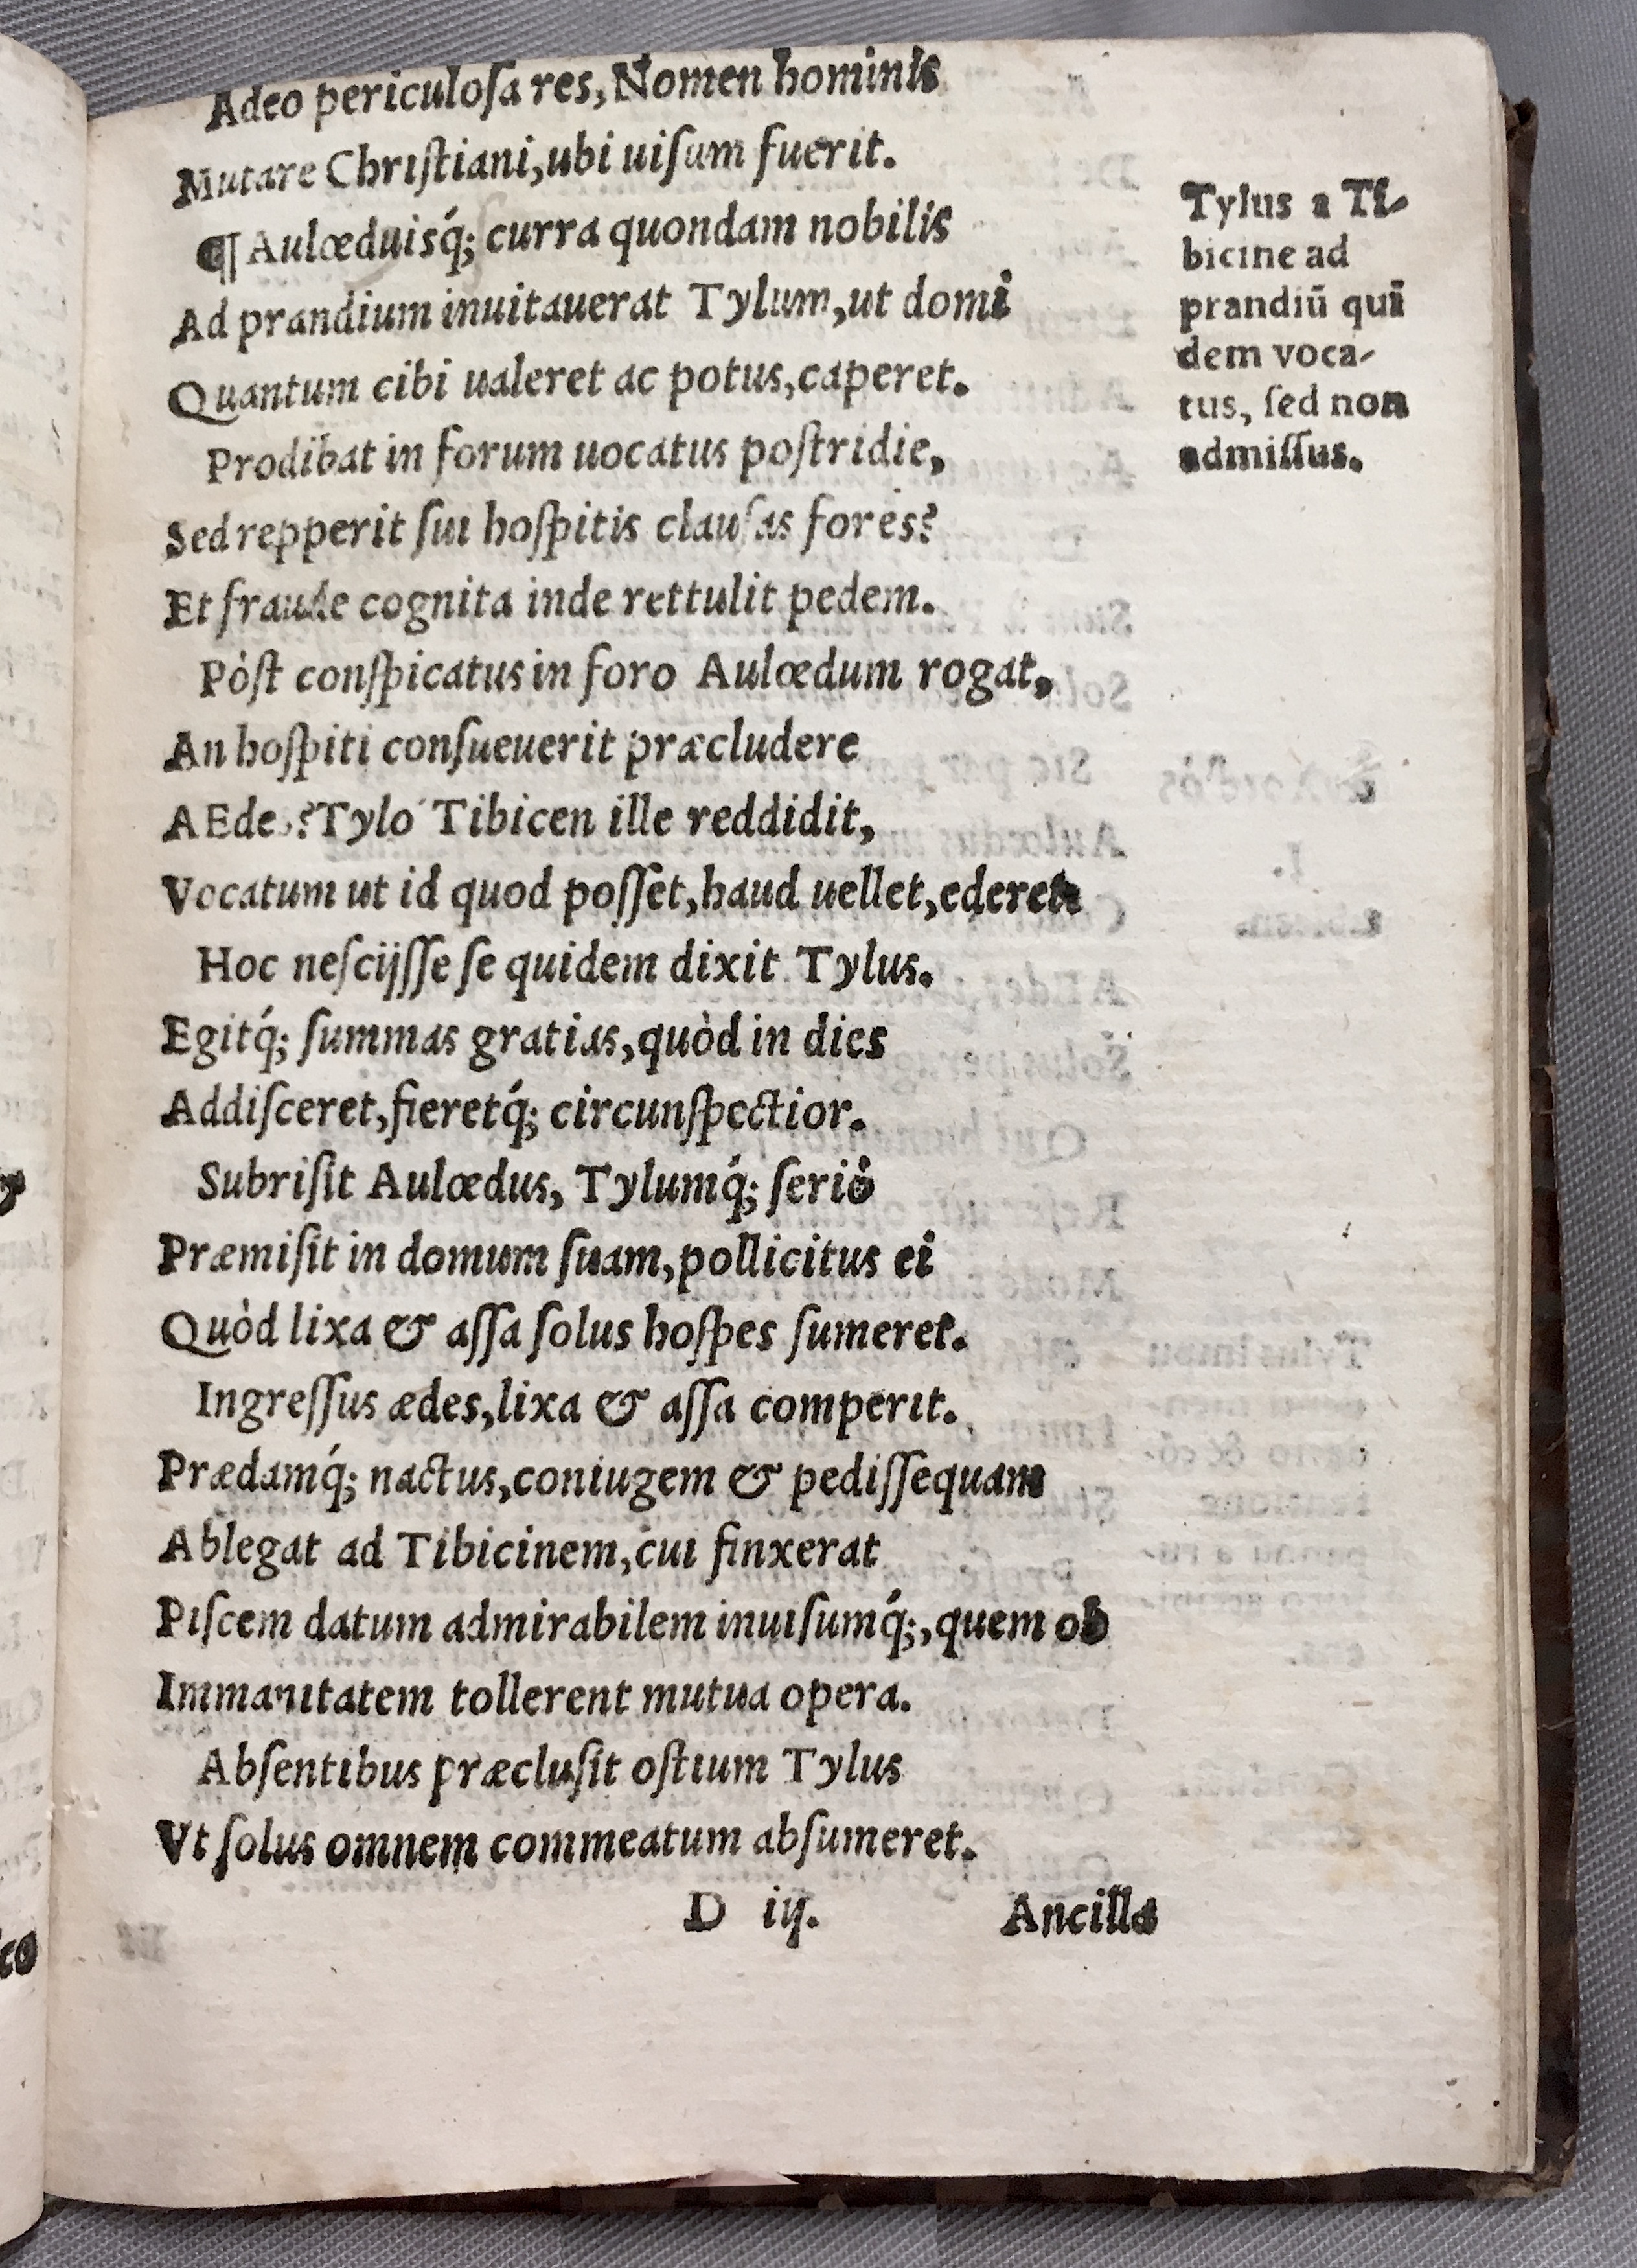 Adeo periculoſa res, Nomen hominis
Mutare Chriſtiani, ubi uiſum fuerit.
¶ Aulœdus isq́; curra quondam nobilis
Ad prandium inuitauerat Tylum, ut domi
Quantum cibi ualeret ac potus, caperet.
Prodibat in forum uocatus poſtridie,
Sed repperit ſui hoſpitis clauſas fores?
Et fraude cognita inde rettulit pedem.
Pòſt conſpicatus in foro Aulœdum rogat,
An hoſpiti conſueuerit præcludere
AEdes? Tylo Tibicen ille reddidit,
Vocatum ut id quod poſſet, haud uellet, ederet.
Hoc neſcijſſe ſe quidem dixit Tylus.
Egitq́; ſummas gratias, quòd in dies
Addiſceret, fieretq́; circunſpectior.
Subriſit Aulœdus, Tylumq́; ſeriò
Præmiſit in domum ſuam, pollicitus ei
Quòd lixa & aſſa ſolus hoſpes ſumeret.
Ingreſſus ædes, lixa & aſſa comperit.
Prædamq́; nactus, coniugem & pediſſequam
Ablegat ad Tibicinem, cui finxerat
Piſcem datum admirabilem inuiſumq́;, quem ob
Immanitatem tollerent mutua opera.
Abſentibus præcluſit oſtium Tylus
Vt ſolus omnem commeatum abſumeret.
D iij.
Ancilla
Tylus a Ti-
bicine ad
prandiū qui
dem voca-
tus, ſed non
admiſſus.